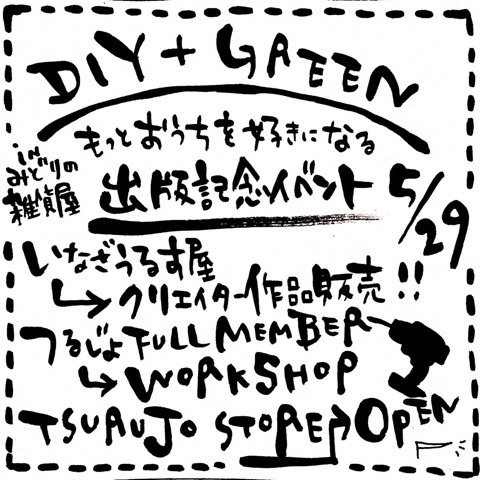 DIY + GREEN
もっとおうちを好きになる
in
みどりの
雑貨屋
出版記念イベント 5/29
いなざうるす屋
↳クリエイター作品販売!!
つるじょ FULL MEMBER
↳WORKSHOP
TSURUJO STORE OPEN